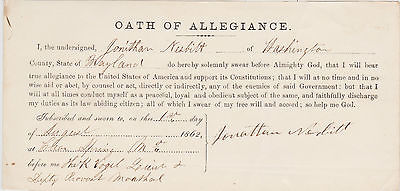 OATH OF ALLEGIANCE.
I, the undersigned, Jonithan Nesbitt of Washington
County, State of Maryland do hereby solemnly swear before Almighty God, that I will bear
true allegiance to the United States of America and support its Constitutions; that I will at no time and in no
wise aid or abet, by counsel or act, directly or indirectly, any of the enemies of said Government: but that I
will at all times conduct myself as a peaceful, loyal and obedient subject of the same, and faithfully discharge
my duties as its law abiding citizen; all of which I swear of my free will and accord; so help me God.
Subscribed and sworn to, on this 1st day
of August 1862,
at Spring
before me &
Depty Provost Marshal
Jonathan Nesbitt